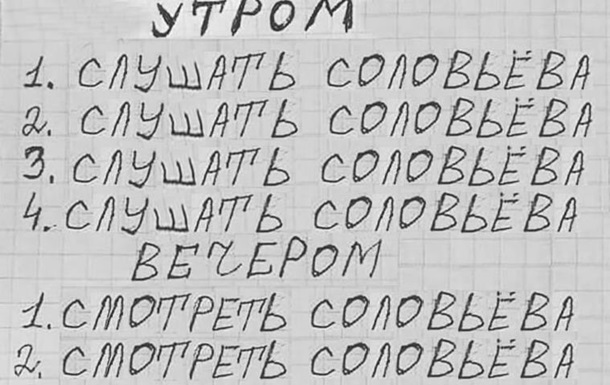 УТРОМ
1. СЛУШАТЬ СОЛОВЬЁВА
2. СЛУШАТЬ СОЛОВЬЁВА
3. СЛУШАТЬ СОЛОВЬЁВА
4. СЛУШАТЬ СОЛОВЬЁВА
ВЕЧЕРОМ
1. СМОТРЕТЬ СОЛОВЬЁВА
2. СМОТРЕТЬ СОЛОВЬЁВА